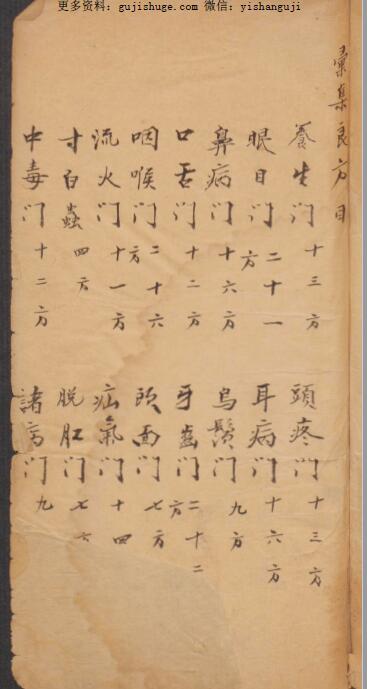 更多资料：gujishuge.com 微信：yishanguji
彙集良方目
養生门 十三方
頭疼门 十三方
眼目门 二十一方
耳病门 十六方
鼻病门 十六方
烏鬚门 九方
口舌门 十二方
牙齒门 二十二方
咽喉门 二十六方
頭面门 七方
流火门 十一方
疝氣门 十四
寸白蟲 四方
脱肛门 七方
中毒门 十二方
諸病门 九